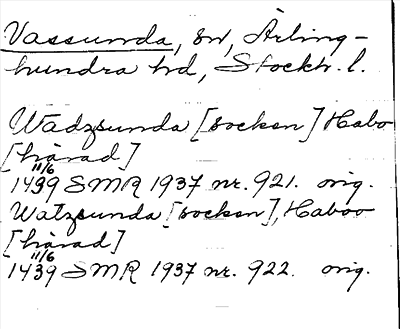 Vassunda, sn, Ärling-
hundra hd, Stockh. l.
Wadzsunda [socken] Habo
[härad]
11/6
1439 SMR 1937 nr. 921. orig.
Watzsunda [socken], Haboo
[härad]
11/6
1439 SMR 1937 nr. 922. orig.